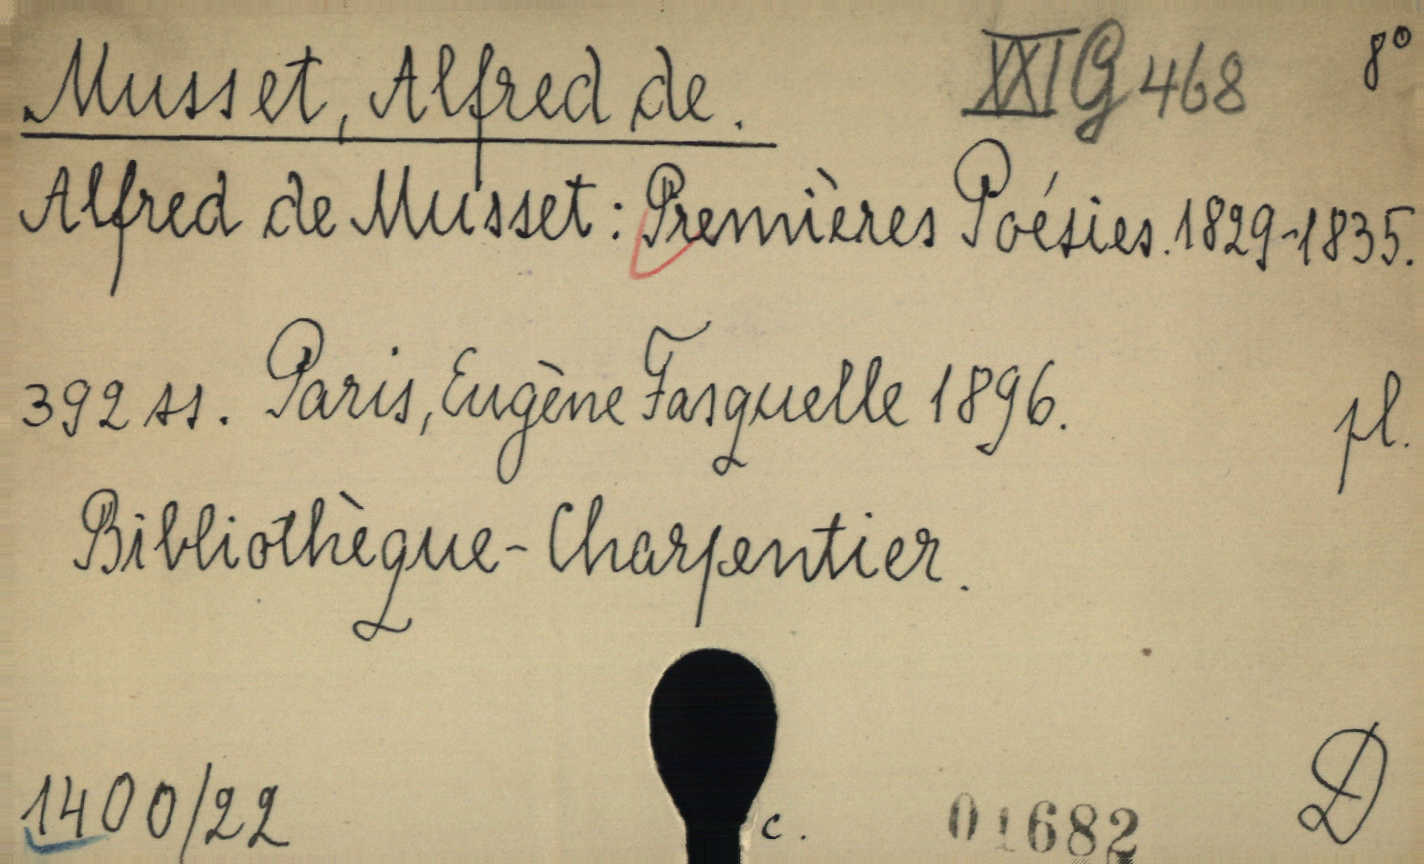 Musset, Alfred de. XXI G 468 8°
Alfred de Musset: Premières Poésies. 1829-1835.
392 ss. Paris, Eugène Fasquelle 1896. pl.
Bibliothèque-Charpentier.
1400/22 c. 01682 D